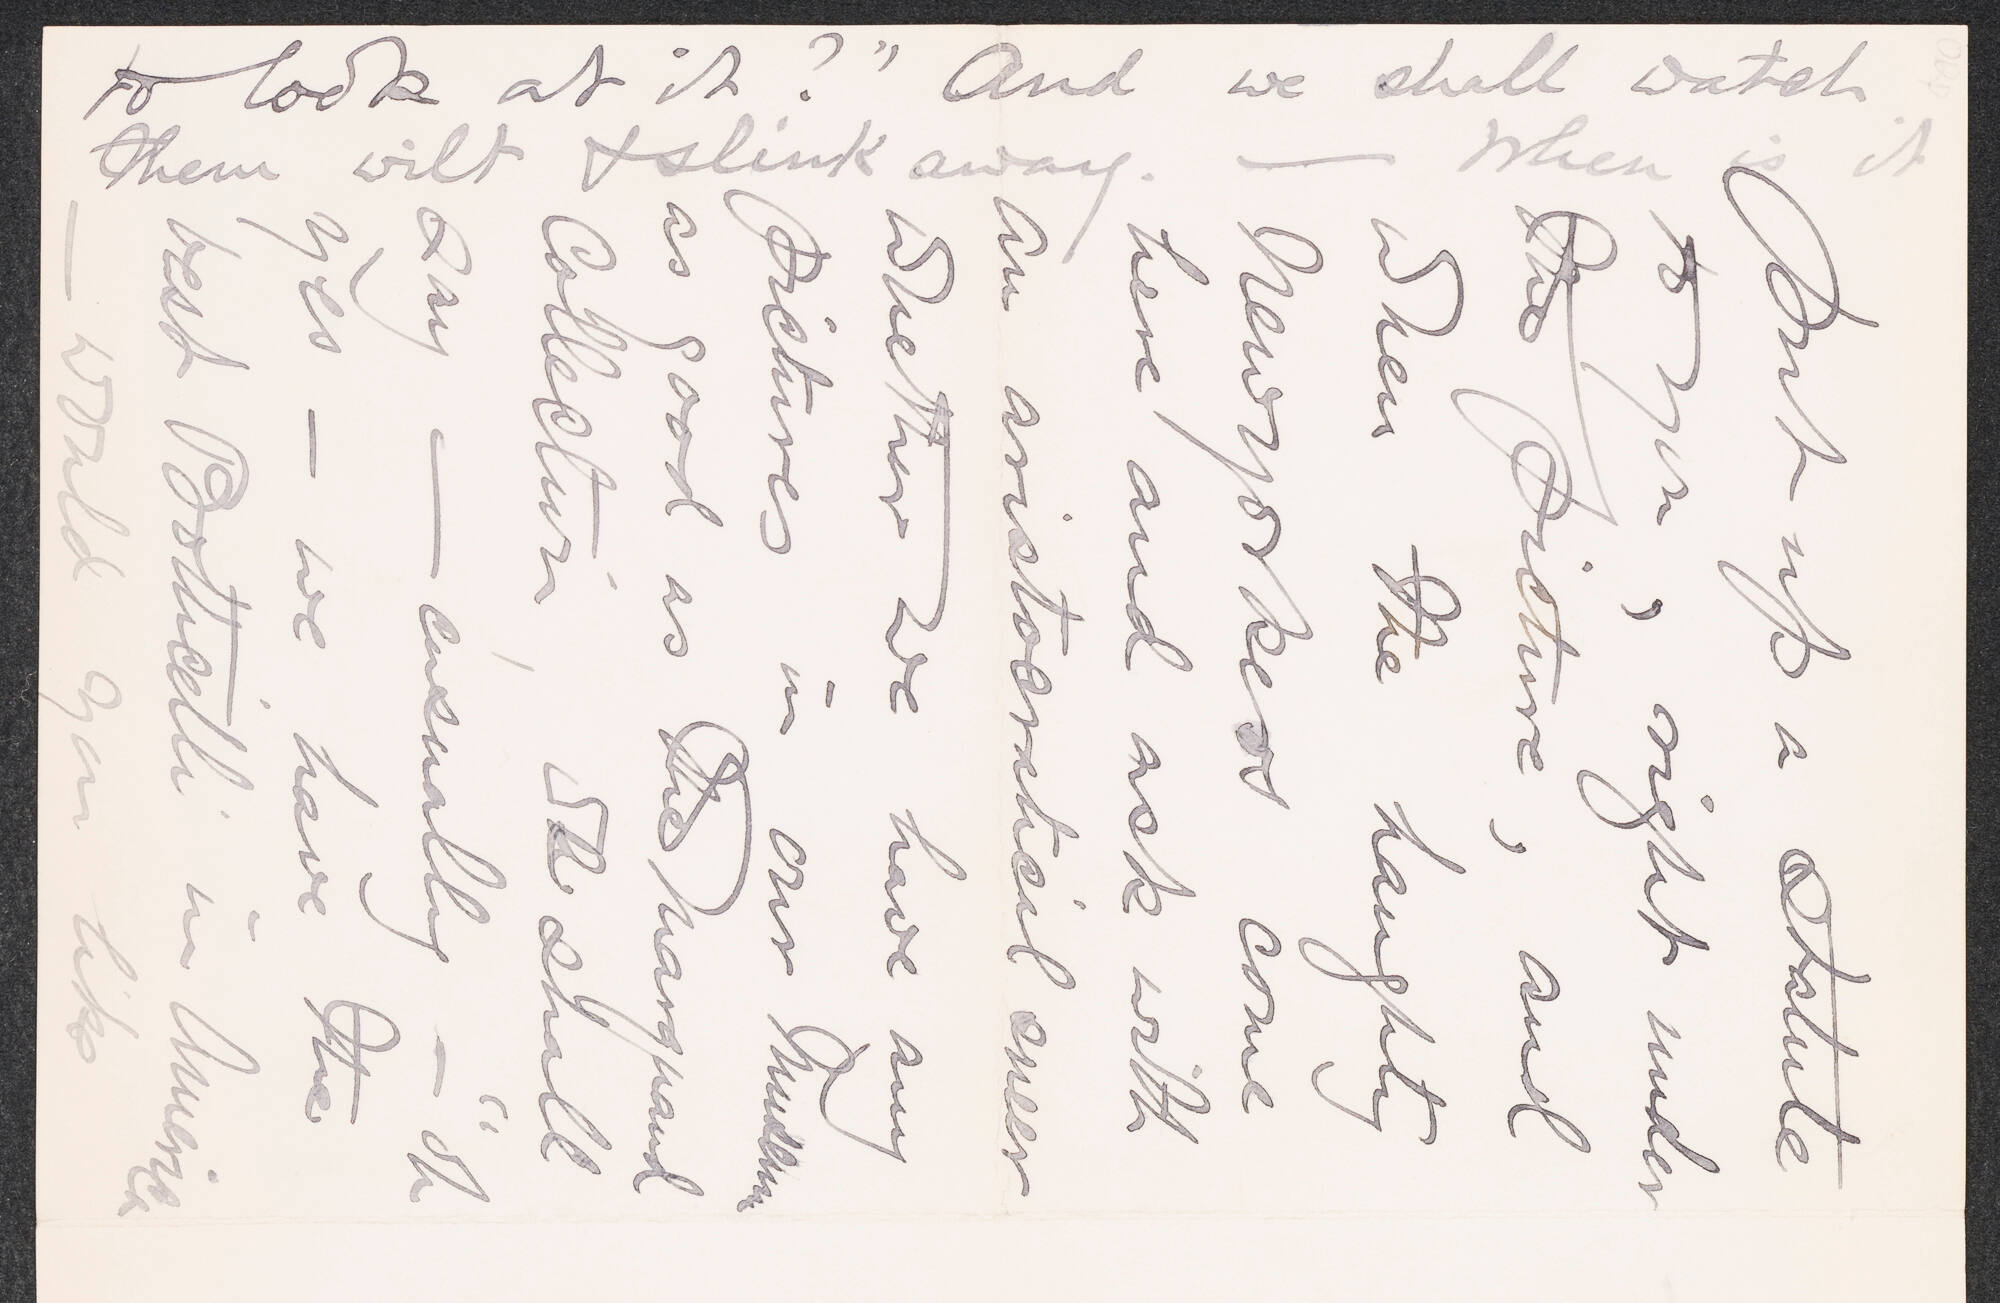 put up a statute
to you, right under
the picture, and
when the haughty
Newyorkers come
here and ask with
an aristocratical sneer
whether we have any
pictures in our Museum
as good as the Marquand
Collection, we shall
say — casually — "oh
yes — we have the
best Botticelli in America
— would you like
to look at it?" And we shall watch
them wilt & slink away. — When is it